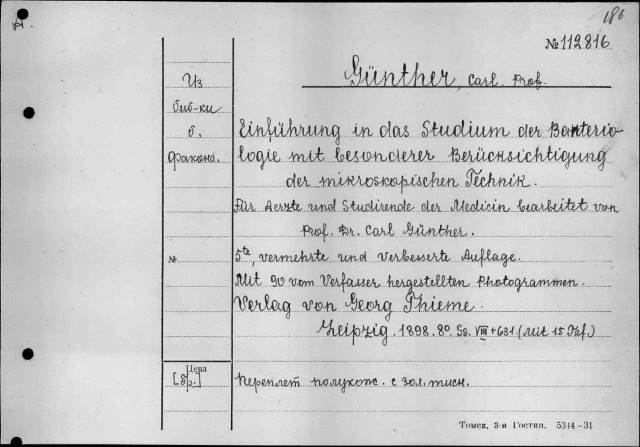 A.
186
№112816
Günther, Carl. Prof.
Из
биб-ки
б.
факона.
Einführung in das Studium der Bakterio-
logie mit besonderer Berücksichtigung
der mikroskopischen Technik.
Für Aerzte und Studirende der Medicin bearbeitet von
Prof. Dr. Carl Günther.
№
5te, vermehrte und verbesserte Auflage.
Mit 90 vom Verfasser hergestellten Photogrammen.
Verlag von Georg Thieme.
Leipzig. 1898. 8º. Ss. VIII+631. (Mit 15 Taf.)
Цена
[бр.]
Переплет полукож. с зол. тисн.
Томск, 3-я Гостип. 5344-31